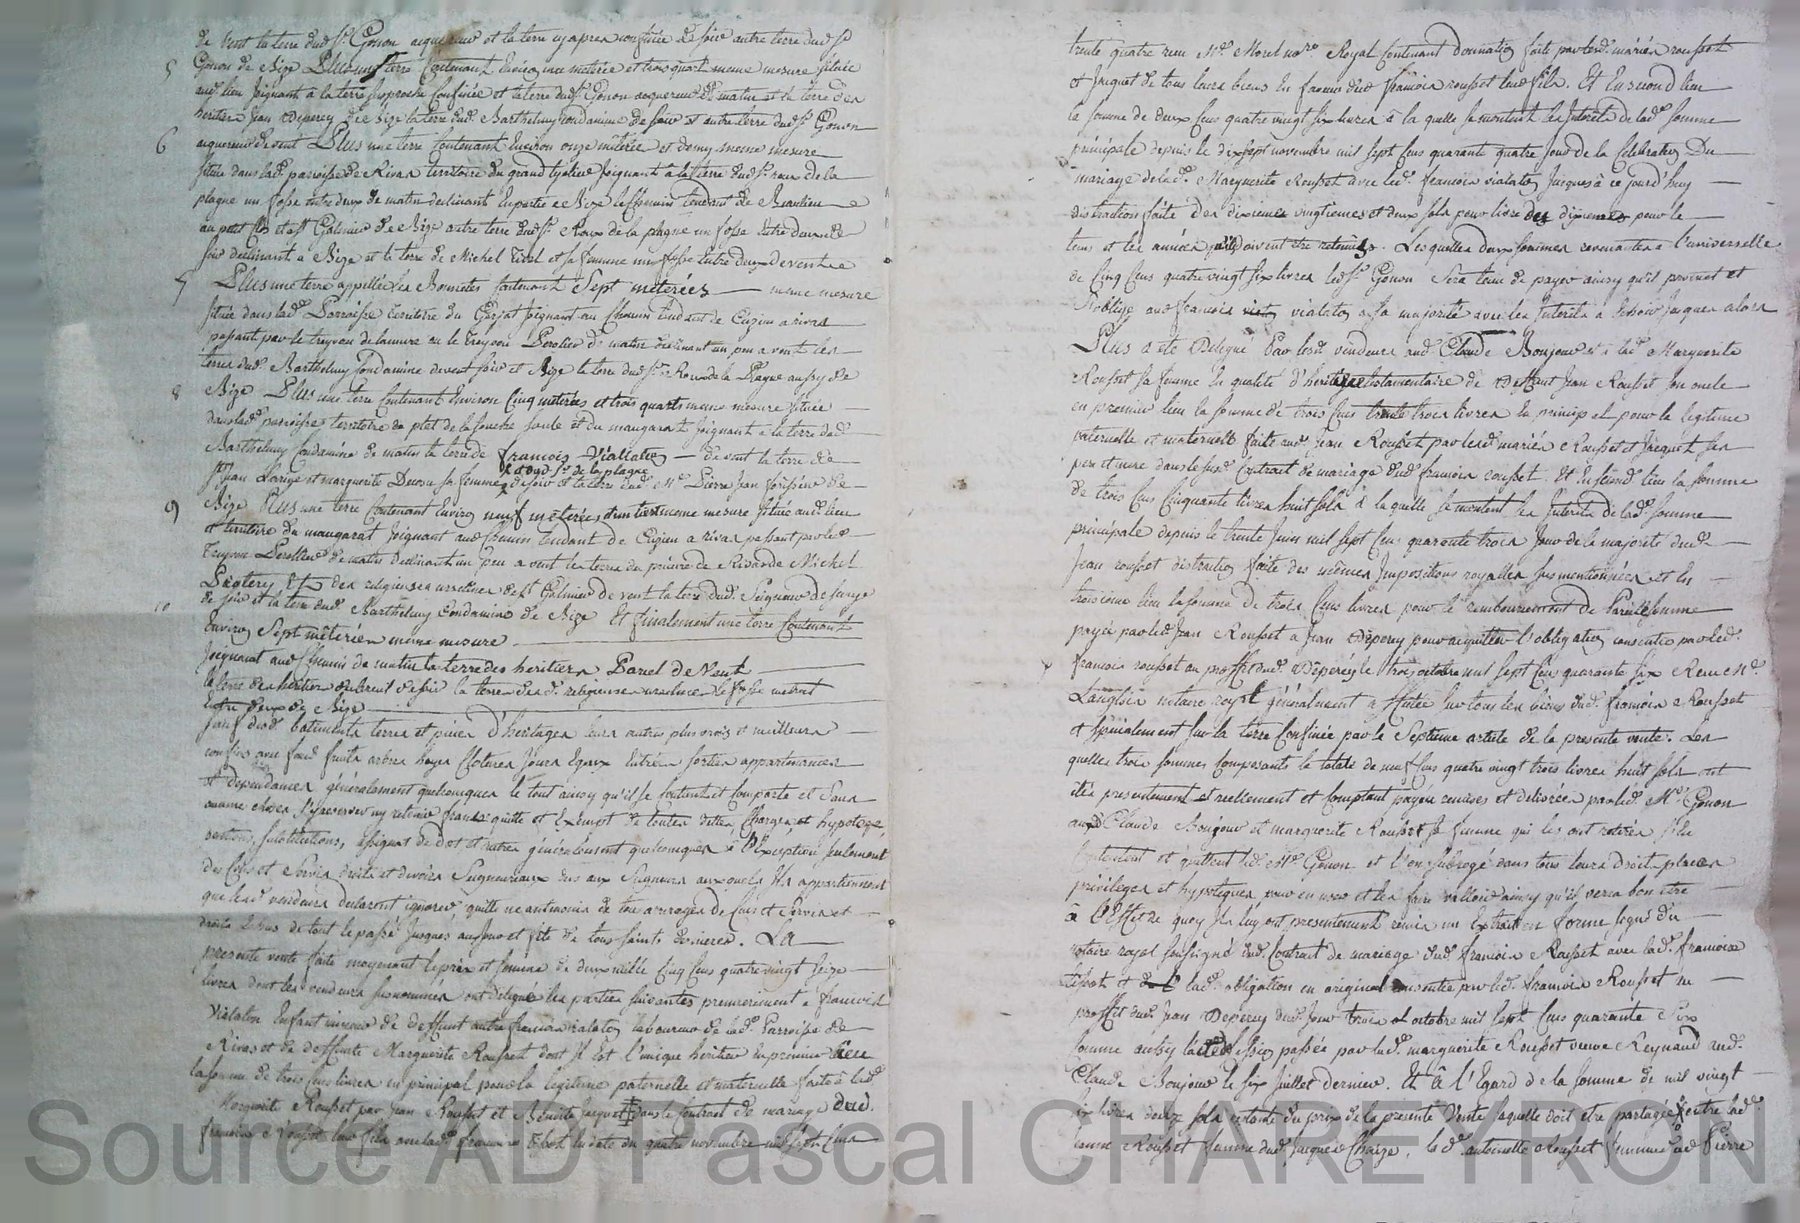 de vent la terre dud Sr. Gonon acquereur et la terre cy apres confinée de soir autre terre dud Sr
5 Gonon de Bize Plus une terre Contenant Environ une meterée et trois quart meme mesure située
aud. lieu joignant à la terre proche Confinée et la terre dud Sr. Gonon acquereur de matin et la terre des
heritiers Jean Deperey de Bize la terre dud. Barthelemy Condamine de soir et autre terre dud Sr. Gonon
6 acquereur de vent Plus une terre Contenant Environ onze méterée et demy meme mesure
située dans lad. paroisse de Rivas territoire du grand joignant à la terre dud Sr. roux de la
plagne un fossé entre deux de matin declinant en partie a Bize le Chemin tendant de Beaulieu
au petit et a St Galmier de Bize autre terre dud Sr. Roux de la plagne un fossé entre deux de
soir declinant à Bize et la terre de Michel et sa femme un fossé entre deux de vent
7 Plus une terre appellée les Bonnetes Contenant Sept méterées meme mesure
située dans lad. Parroisse territoire du Garjat joignant au Chemin tendant de Cuzieu a rivas
passant par le treyvou de la mure ou le Treyvou Perolier de matin declinant un peu a vent les
terres dud. Barthelemy Condamine de vent soir et Bize la terre dud Sr. Roux de la Plagne aussy de
8 Bize Plus une terre Contenant Environ Cinq méterées et trois quarts meme mesure située
dans lad. parroisse territoire de plet de la souche soule et du mangarat joignant a la terre dud.
Barthelemy Condamine de matin la terre de francois Vialaton de vent la terre de
& dud Sr. de la plagne
Sr Jean Larige et marguerite sa femme de soir et la terre dud. Me. Pierre Jean de
9 Bize Plus une terre Contenant Environ neuf méterées et un tiers meme mesure située aud. lieu
et territoire du mangarat joignant aud Chemin tendant de Cuzieu a rivas passant par led.
Treyvou Perollier de matin Declinant un peu a vent les terres du prieuré de Rivas de Michel
et des religieuses urselines de St Galmier de vent la terre dud. Seigneur de
10 de soir et la terre dud. Barthelemy Condamine de Bize Et finalement une terre Contenant
Environ Sept méterées meme mesure
joignant aud Chemin de matin la terre des heritiers Parel de Vent
la terre des heritiers dubreuil de soir la terre desd. religieuses urselines le fossé
Entre deux de Bize
sauf desd. batiments terres et pieces d'heritages leurs autres plus vrais et meilleurs
confins avec fond fruits arbres hayes Clotures jours Egaux Entrées sorties appartenances
et dependances généralement quelconques le tout ainsy qu'il se Contient et Comporte et Sans
aucune chose s'y reserver ny retenir franc quitte et Exempt de toutes dettes Charges et hypoteques
substitutions, assignat de dot et autres généralement quelconques à l'Exception seulement
des Cens et Servis droits et devoirs Seigneuriaux dus aux Seigneurs auxquels ils appartiennent
que lesd. vendeurs declarent ignorer quitte neantmoins de tous arrerages de Cens et Servis et
droits Echus de tout le passé jusques au jour et fete de tous saints derniere. LA
presente vente faite moyenant le prix et somme de deux mille Cinq Cens quatre vingt seize
livres dont les vendeurs susnommés ont délegué les parties suivantes premierement a francois
Vialaton Enfant mineur de deffunt autre francois vialaton laboureur de lad. Parroisse de
Rivas et de deffunte Marguerite Rousset dont Il Est l'unique heritier En premier lieu
la somme de trois Cens livres en principal pour la legitime paternelle et maternelle faite à lad.
Marguerite Rousset par Jean Rousset et Benoite Jacquet dans le Contract de mariage dud.
francois Rousset leur fils avec lad. francoise Tibost En date du quatre novembre mil sept Cens
trente quatre recu Me. Morel nore. Royal Contenant Donnation faite par lesd. mariés rousset
et Jaquet de tous leurs biens En faveur dud francois rousset leur fils. Et En second lieu
la somme de deux Cens quatre vingt six livres à la quelle se montent les Interets de lad. somme
principale depuis le dix sept novembre mil sept Cens quarante quatre jour de la Celebration Du
mariage de lad. Marguerite Rousset avec led. francois vialaton jusques à ce jourd'huy
distraction faite des dixiemes vingtiemes et deux sols pour livre des dixiemes pour le
tems et les années qu'ils doivent être retenus. Lesquelles deux sommes revenantes a l'universelle
de Cinq Cens quatre vingt six livres led Sr. Gonon Sera tenu de payer ainsy qu'il promet et
s'oblige aud francois vialaton a sa majorité avec les Interets a Echoir jusques alors
Plus a ete Delegué Par lesd vendeurs aud Claude Bonjour et à lad. Marguerite
Rousset sa femme En qualité d'heritiere testamentaire de Deffunt Jean Rousset son oncle
en premier lieu la somme de trois Cens trente trois livres En principal pour la legitime
paternelle et maternelle faite aud. Jean Rousset par lesd. mariés Rousset et Jacquet ses
pere et mere dans le susd. Contrat de mariage dud francois rousset. Et En second lieu la somme
de trois Cens Cinquante livres huit sols à la quelle se montent les Interets de lad. somme
principale depuis le trente Juin mil sept Cens quarante trois jour de la majorité dud.
Jean rousset distraction faite des mêmes Impositions royalles sus mentionnées et En
troisieme lieu la somme de trois Cens livres pour le remboursement de Pareille somme
payée par led Jean Rousset a Jean Deperey pour acquitter l'obligation consentie par led.
francois rousset au proffit dud. Deperey le trois octobre mil sept Cens quarante six Recue Me.
Langlois notaire royal généralement affectée sur tous les biens dud. francois Rousset
et spécialement sur la terre Confinée par le Septieme article de la presente vente. Les
quelles trois sommes Composants le totale de neuf Cens quatre vingt trois livres huit sols ont
étés presentement et reellement et Comptant payées remises et delivrées par led. Me. Gonon
aud Claude Bonjour et marguerite Rousset sa femme qui les ont retirés s'En
Contentent et quittent led. Me. Gonon et l'on subrogé dans tous leurs droits places
privileges et hypoteques pour en user et les faire valloir ainsy qu'il verra bon être
à l'Effet de quoy Ils luy ont presentement remis un Extrait en forme signé du
notaire royal soussigné dud. Contrat de mariage dud francois Rousset avec lad. francoise
Tibost et lad. obligation en original consentie par led. francois Rousset au
proffit dud. Jean Deperey dud. jour trois octobre mil sept Cens quarante Six
Comme aussy la Cession passée par lad. marguerite Rousset veuve Reynaud aud.
Claude Bonjour le six Juillet dernier. Et à l'Egard de la somme de mil vingt
six livres douze sols restante du prix de la presente Vente laquelle doit etre partagée entre lad.
Rousset femme dud. Jacques Chaize, lad. antoinette Rousset femme dud Pierre
Source AD Pascal CHAREYRON